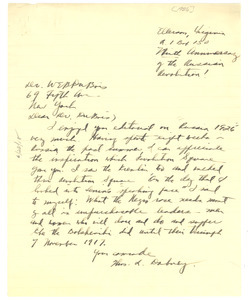 [1926]
Virginia
R 1 Box 150
Ninth Anniversary
of the Russian
Revolution!
Dr. W E B Du Bois
69 Fifth Ave
New York
Dear Dr. Du Bois,
I enjoyed your editorial on Russia 1926
very much. Having spent eight weeks
during the past summer I can appreciate
the inspiration which Revolution Square
gave you. I saw the Kremlin too and walked
thru Revolution Square. On the day that I
looked into Lenin's speaking face I said
to myself: What the Negro race needs most
of all is unpurchasable leaders - men
and women who will dare and do and suffer
like the Bolsheviki did until their triumph
7 November 1917.
Your comrade
Thos. L. Dabney